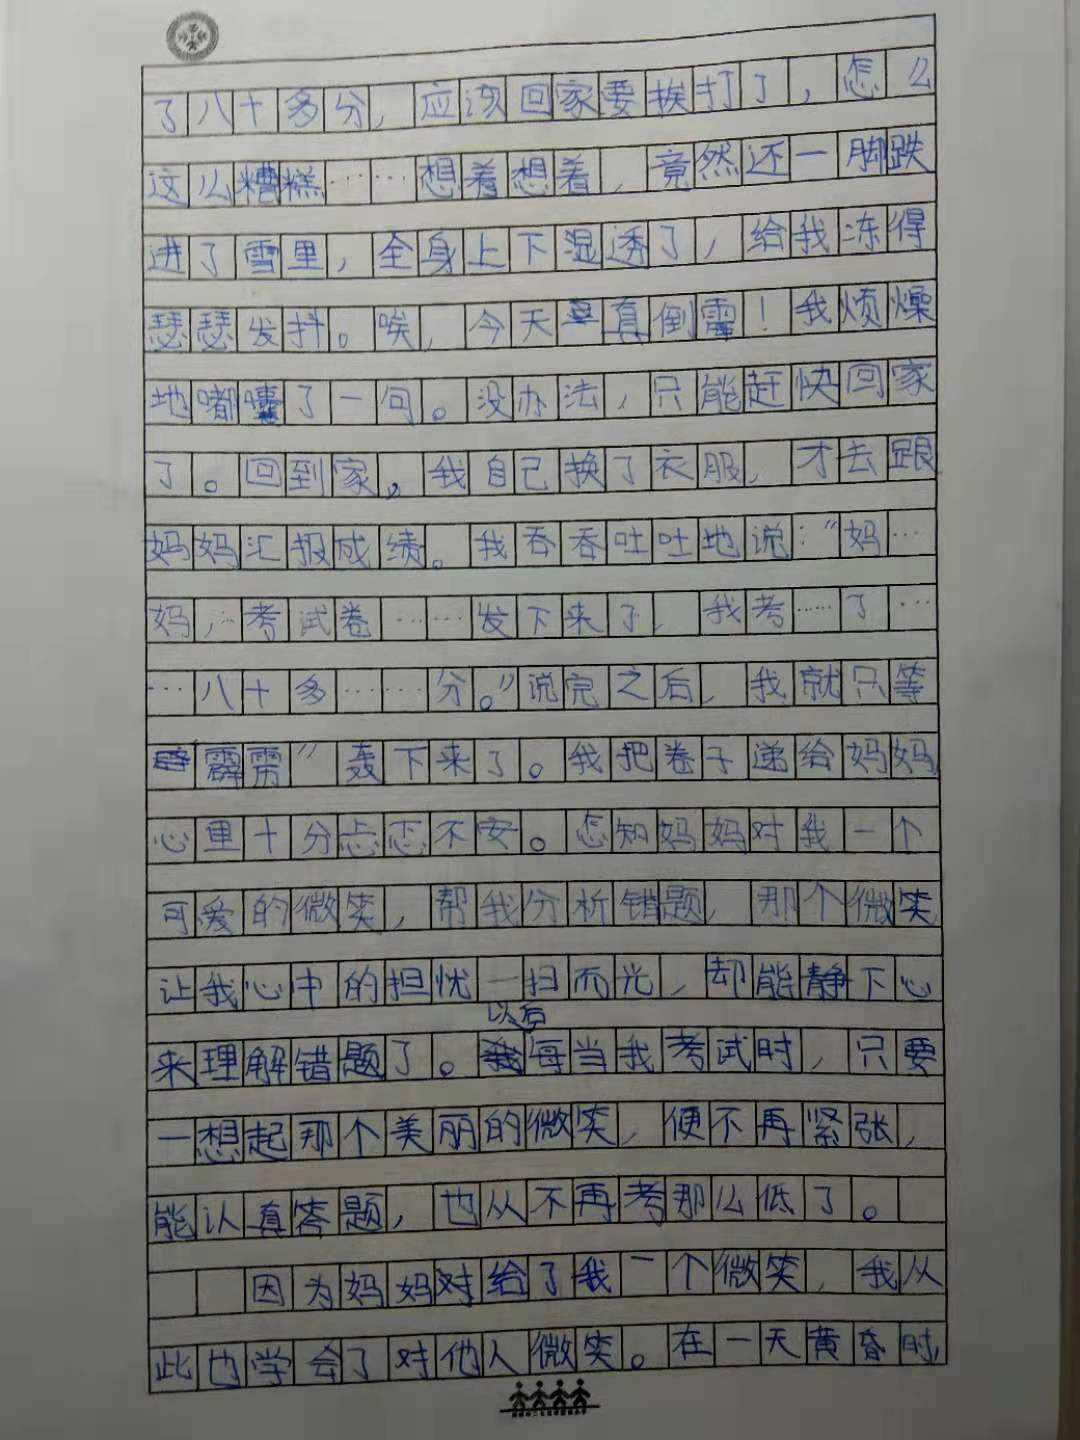 了八十多分，应该回家要挨打了，怎么
这么糟糕……想着想着，竟然还一脚跌
进了雪里，全身上下湿透了，给我冻得
瑟瑟发抖。唉，今天真倒霉！我烦燥
地嘟囔了一句。没办法，只能赶快回家
了。回到家，我自己换了衣服，才去跟
妈妈汇报成绩。我吞吞吐吐地说：“妈…
妈，…考试卷……发下来了，我考……了…
…八十多……分。”说完之后，我就只等
霹雳”轰下来了。我把卷子递给妈妈
心里十分忐忑不安。怎知妈妈对我一个
可爱的微笑，帮我分析错题，那个微笑
让我心中的担忧一扫而光，却能静下心
来理解错题了。以后每当我考试时，只要
一想起那个美丽的微笑，便不再紧张，
能认真答题，也从不再考那么低了。
因为妈妈对给了我一个微笑，我从
此也学会了对他人微笑。在一天黄昏时，